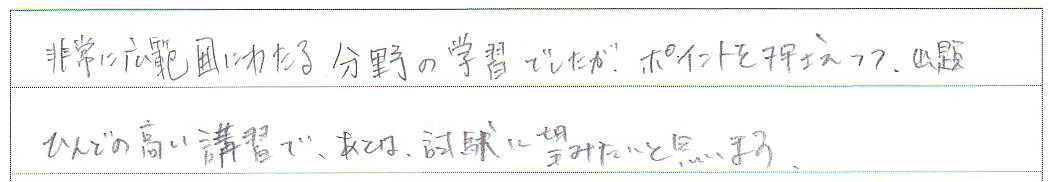 非常に広範囲にわたる分野の学習でしたが、ポイントを押さえつつ、出題
ひんどの高い講習で、あとは、試験に望みたいと思います。